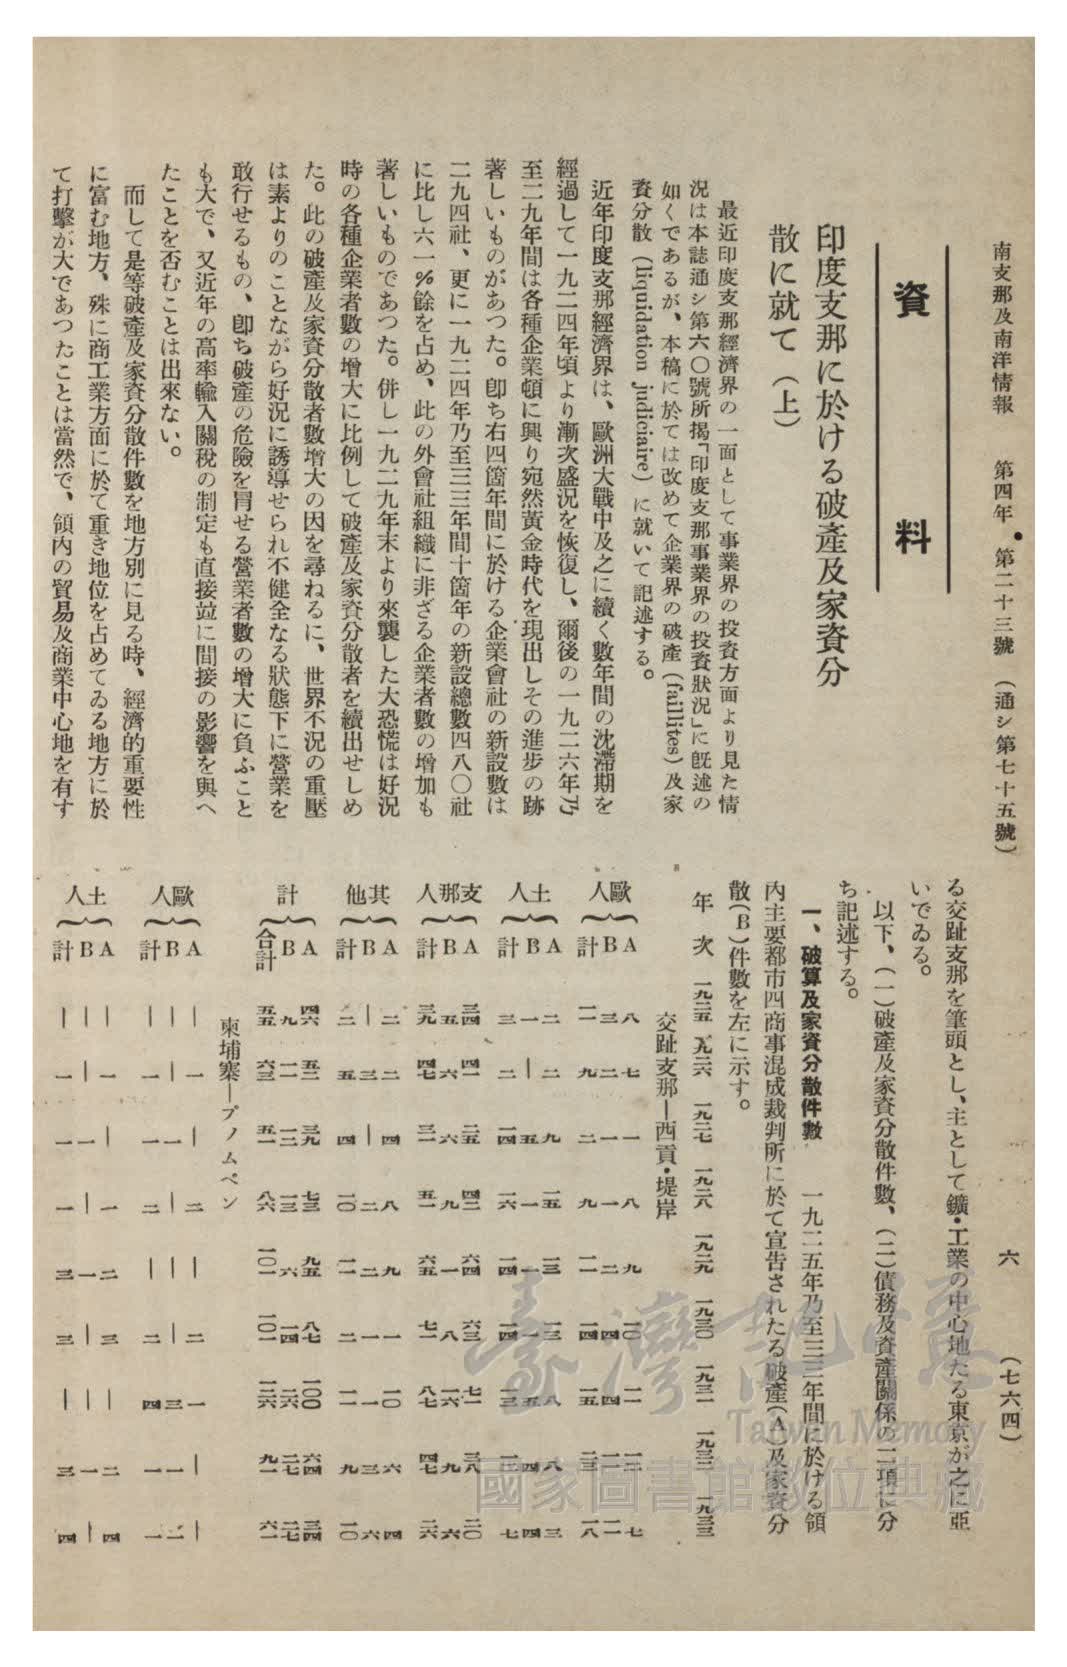 南支那及南洋情報　第四年・第二十三號　（通シ第七十五號）　六　（七六四）
資料
印度支那に於ける破產及家資分
散に就て（上）
最近印度支那經濟界の一面として事業界の投資方面より見た情
況は本誌通シ第六〇號所揭「印度支那事業界の投資狀況」に旣述の
如くであるが、本稿に於ては改めて企業界の破產（faillites）及家
資分散（liquidation judiciaire）に就いて記述する。
近年印度支那經濟界は、歐洲大戰中及之に續く數年間の沈滯期を
經過して一九二四年頃より漸次盛況を恢復し、爾後の一九二六年乃
至二九年間は各種企業頓に興り宛然黃金時代を現出しその進步の跡
著しいものがあつた。卽ち右四箇年間に於ける企業會社の新設數は
二九四社、更に一九二四年乃至三三年間十箇年の新設總數四八〇社
に比し六一％餘を占め、此の外會社組織に非ざる企業者數の增加も
著しいものであつた。併し一九二九年末より來襲した大恐慌は好況
時の各種企業者數の增大に比例して破產及家資分散者を續出せしめ
た。此の破產及家資分散者數增大の因を尋ねるに、世界不況の重壓
は素よりのことながら好況に誘導せられ不健全なる狀態下に營業を
敢行せるもの、卽ち破產の危險を冐せる營業者數の增大に負ふこと
も大で、又近年の高率輸入關稅の制定も直接竝に間接の影響を與へ
たことを否むことは出來ない。
而して是等破產及家資分散件數を地方別に見る時、經濟的重要性
に富む地方、殊に商工業方面に於て重き地位を占めてゐる地方に於
て打擊が大であつたことは當然で、領內の貿易及商業中心地を有す
る交趾支那を筆頭とし、主として鑛・工業の中心地たる東京が之に亞
いでゐる。
以下、（一）破產及家資分散件數、（二）債務及資產關係の二項に分
ち記述する。
一、破算及家資分散件數　一九二五年乃至三三年間に於ける領
內主要都市四商事混成裁判所に於て宣告されたる破產（A）及家資分
散（B）件數を左に示す。
年次　一九二五　一九二六　一九二七　一九二八　一九二九　一九三〇　一九三一　一九三二　一九三三
交趾支那—西貢・堤岸
歐人　A　八　七　一　八　九　一〇　一一　一二　七
B　三　二　一　一　二　四　四　一一　一一
計　一一　九　二　九　一一　一四　一五　二三　一八
土人　A　二　二　九　一五　一三　一三　八　八　三
B　一　｜　五　一　一　一　五　四　四
計　三　二　一四　一六　一四　一四　一三　一二　七
支那人　A　三四　四一　二五　四二　六四　六三　七一　三八　二〇
B　五　六　六　九　一　八　一六　九　六
計　三九　四七　三一　五一　六五　七一　八七　四七　二六
其他　A　二　二　四　八　九　一　一〇　六　四
B　｜　三　｜　二　二　一　一　三　六
計　二　五　四　一〇　一一　二　一一　九　一〇
計　A　四六　五二　三九　七三　九五　八七　一〇〇　六四　三四
B　九　一一　一二　一三　六　一四　二六　二七　二七
合計　五五　六三　五一　八六　一〇一　一〇一　一二六　九一　六一
柬埔寨—プノムペン
歐人　A　｜　一　｜　二　｜　二　一　｜　｜
B　｜　｜　一　｜　｜　｜　三　一　二
計　｜　一　一　二　｜　二　四　一　二
土人　A　｜　一　｜　一　二　三　｜　二　四
B　｜　｜　一　｜　一　｜　｜　一　｜
計　｜　一　一　一　三　三　｜　三　四
臺灣記憶
Taiwan Memory
國家圖書館數位典藏